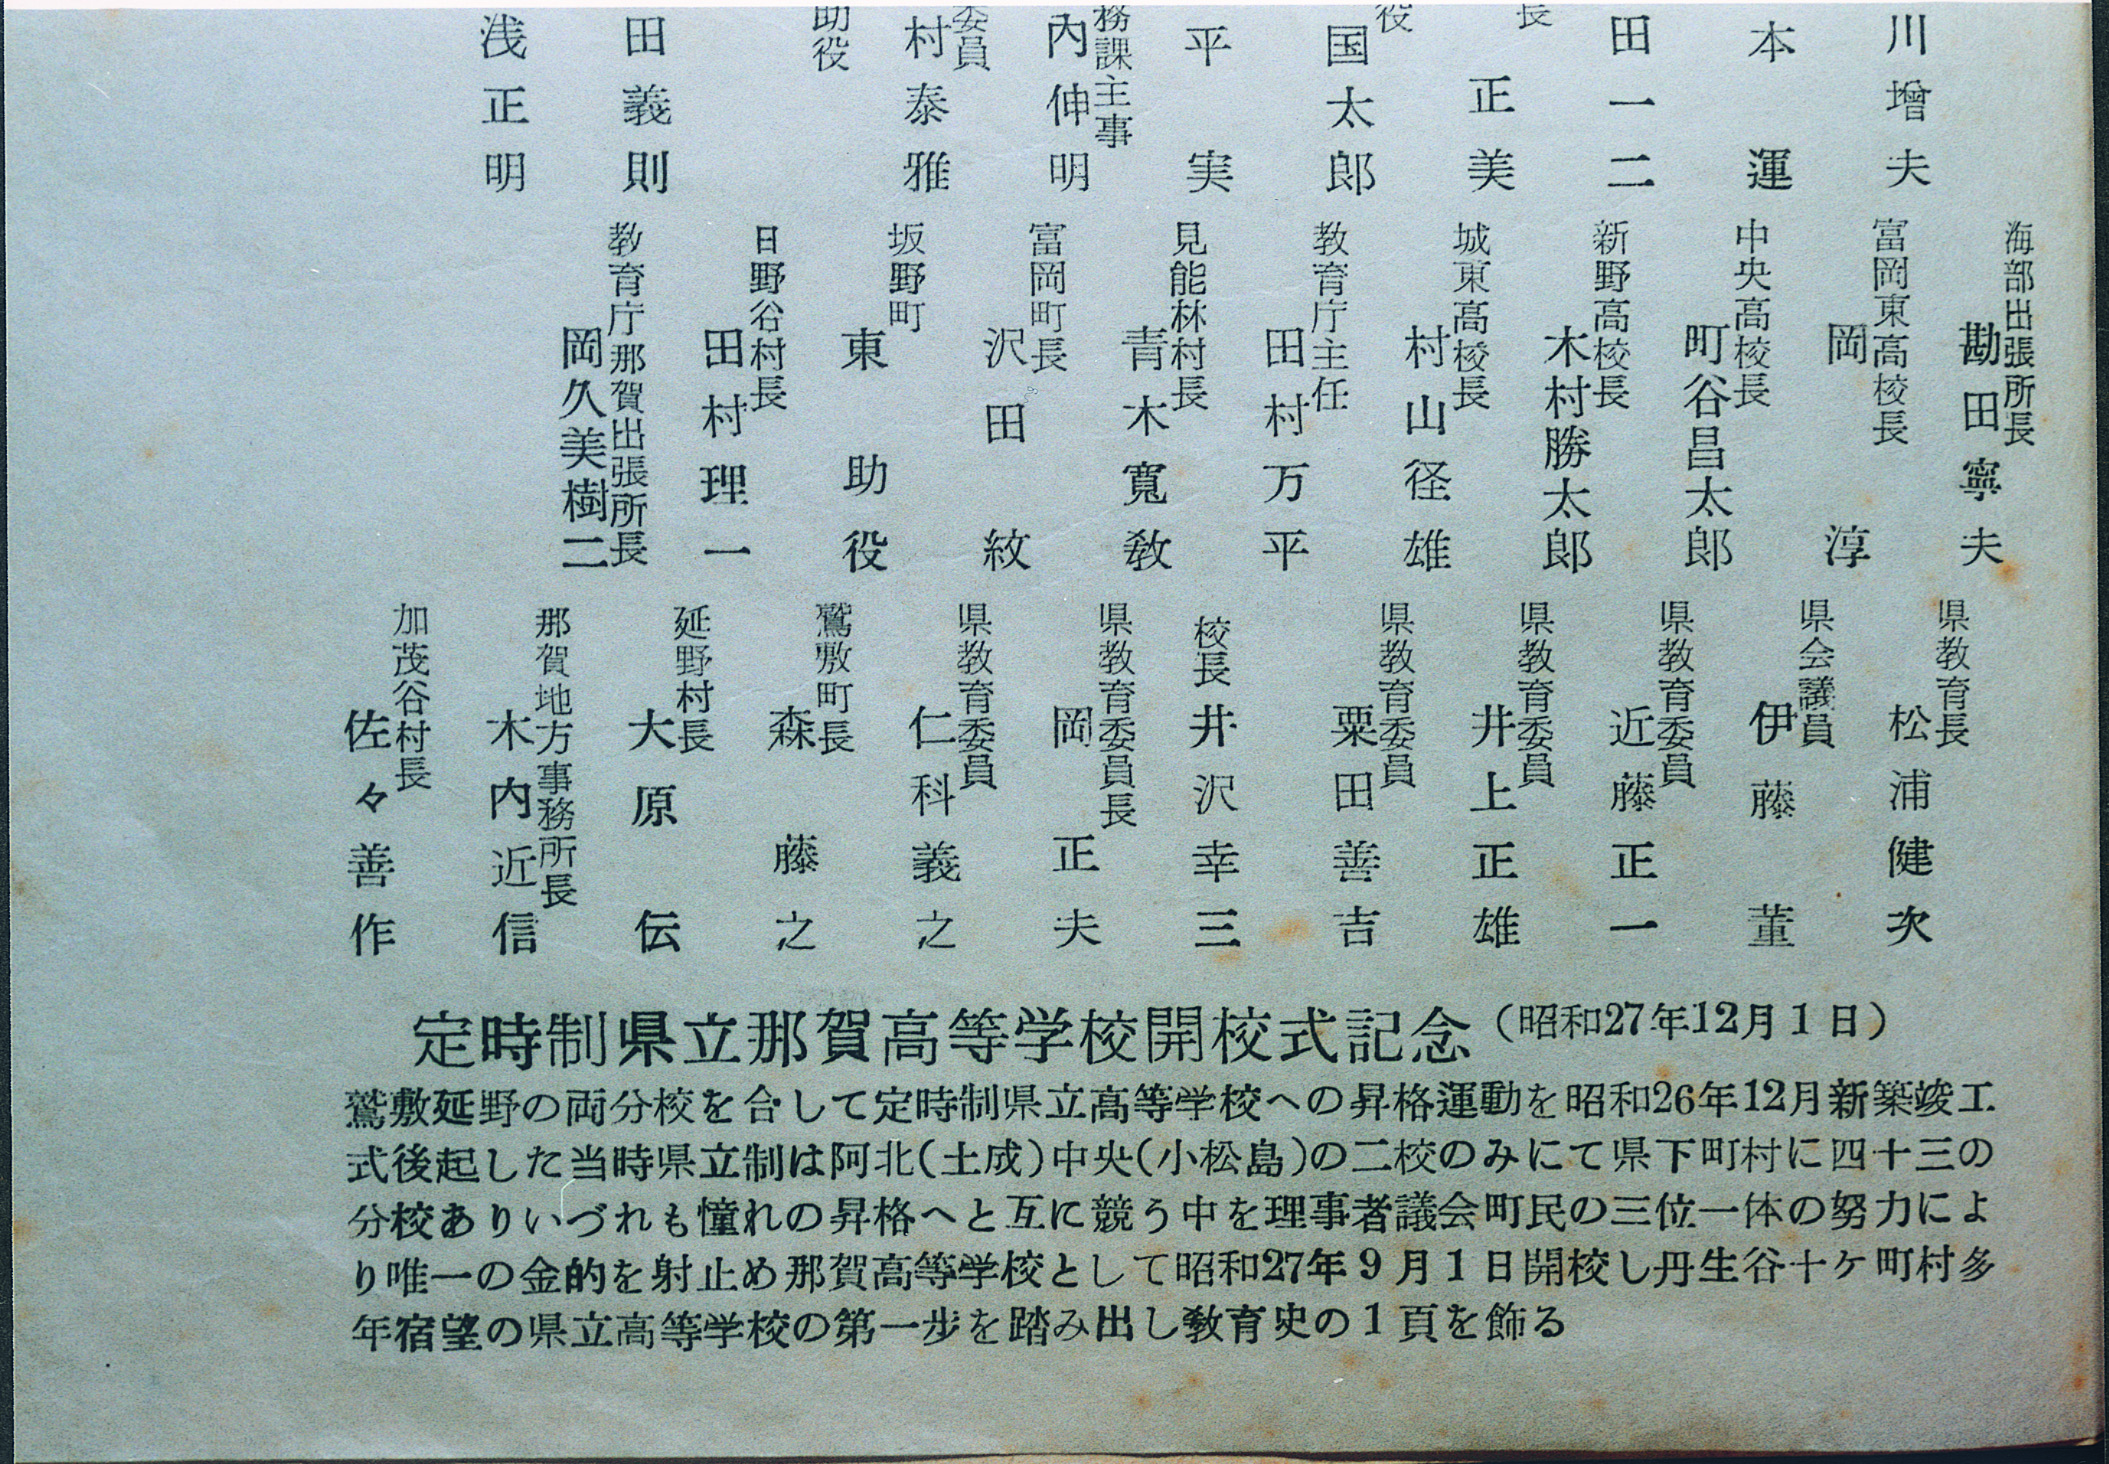 川増夫
本運
田一二
長
正美
役
国太郎
平実
務課主事
内伸明
委員
村泰雅
助役
田義則
浅正明
海部出張所長
勘田寧夫
富岡東高校長
岡淳
中央高校長
町谷昌太郎
新野高校長
木村勝太郎
城東高校長
村山径雄
教育庁主任
田村万平
見能林村長
青木寛敎
富岡町長
沢田紋
坂野町
東助役
日野谷村長
田村理一
教育庁那賀出張所長
岡久美樹二
県教育長
松浦健次
県会議員
伊藤董
県教育委員
近藤正一
県教育委員
井上正雄
県教育委員
粟田善吉
校長
井沢幸三
県教育委員長
岡正夫
県教育委員
仁科義之
鷲敷町長
森藤之
延野村長
大原伝
那賀地方事務所長
木内近信
加茂谷村長
佐々善作
定時制県立那賀高等学校開校式記念（昭和27年12月1日）
鷲敷延野の両分校を合して定時制県立高等学校への昇格運動を昭和26年12月新築竣工
式後起した当時県立制は阿北(土成)中央(小松島)の二校のみにて県下町村に四十三の
分校ありいづれも憧れの昇格へと互に競う中を理事者議会町民の三位一体の努力によ
り唯一の金的を射止め那賀高等学校として昭和27年9月1日開校し丹生谷十ケ町村多
年宿望の県立高等学校の第一歩を踏み出し教育史の1頁を飾る